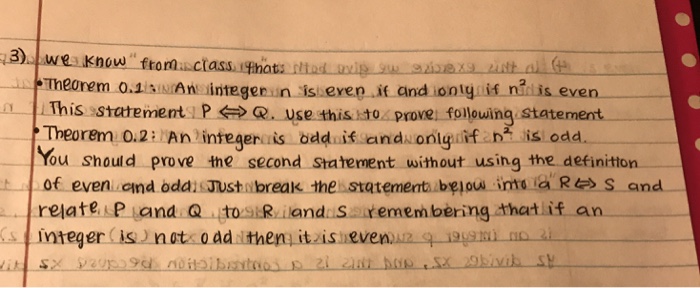 3) we know from class that:
• Theorem 0.1: An integer n is even if and only if n² is even
This statement P ⟺ Q. Use this to prove following statement
• Theorem 0.2: An integer is odd if and only if n² is odd.
You should prove the second statement without using the definition
of even and odd. Just break the statement below into a R⟺S and
relate P and Q to R and S remembering that if an
integer is not odd then it is even